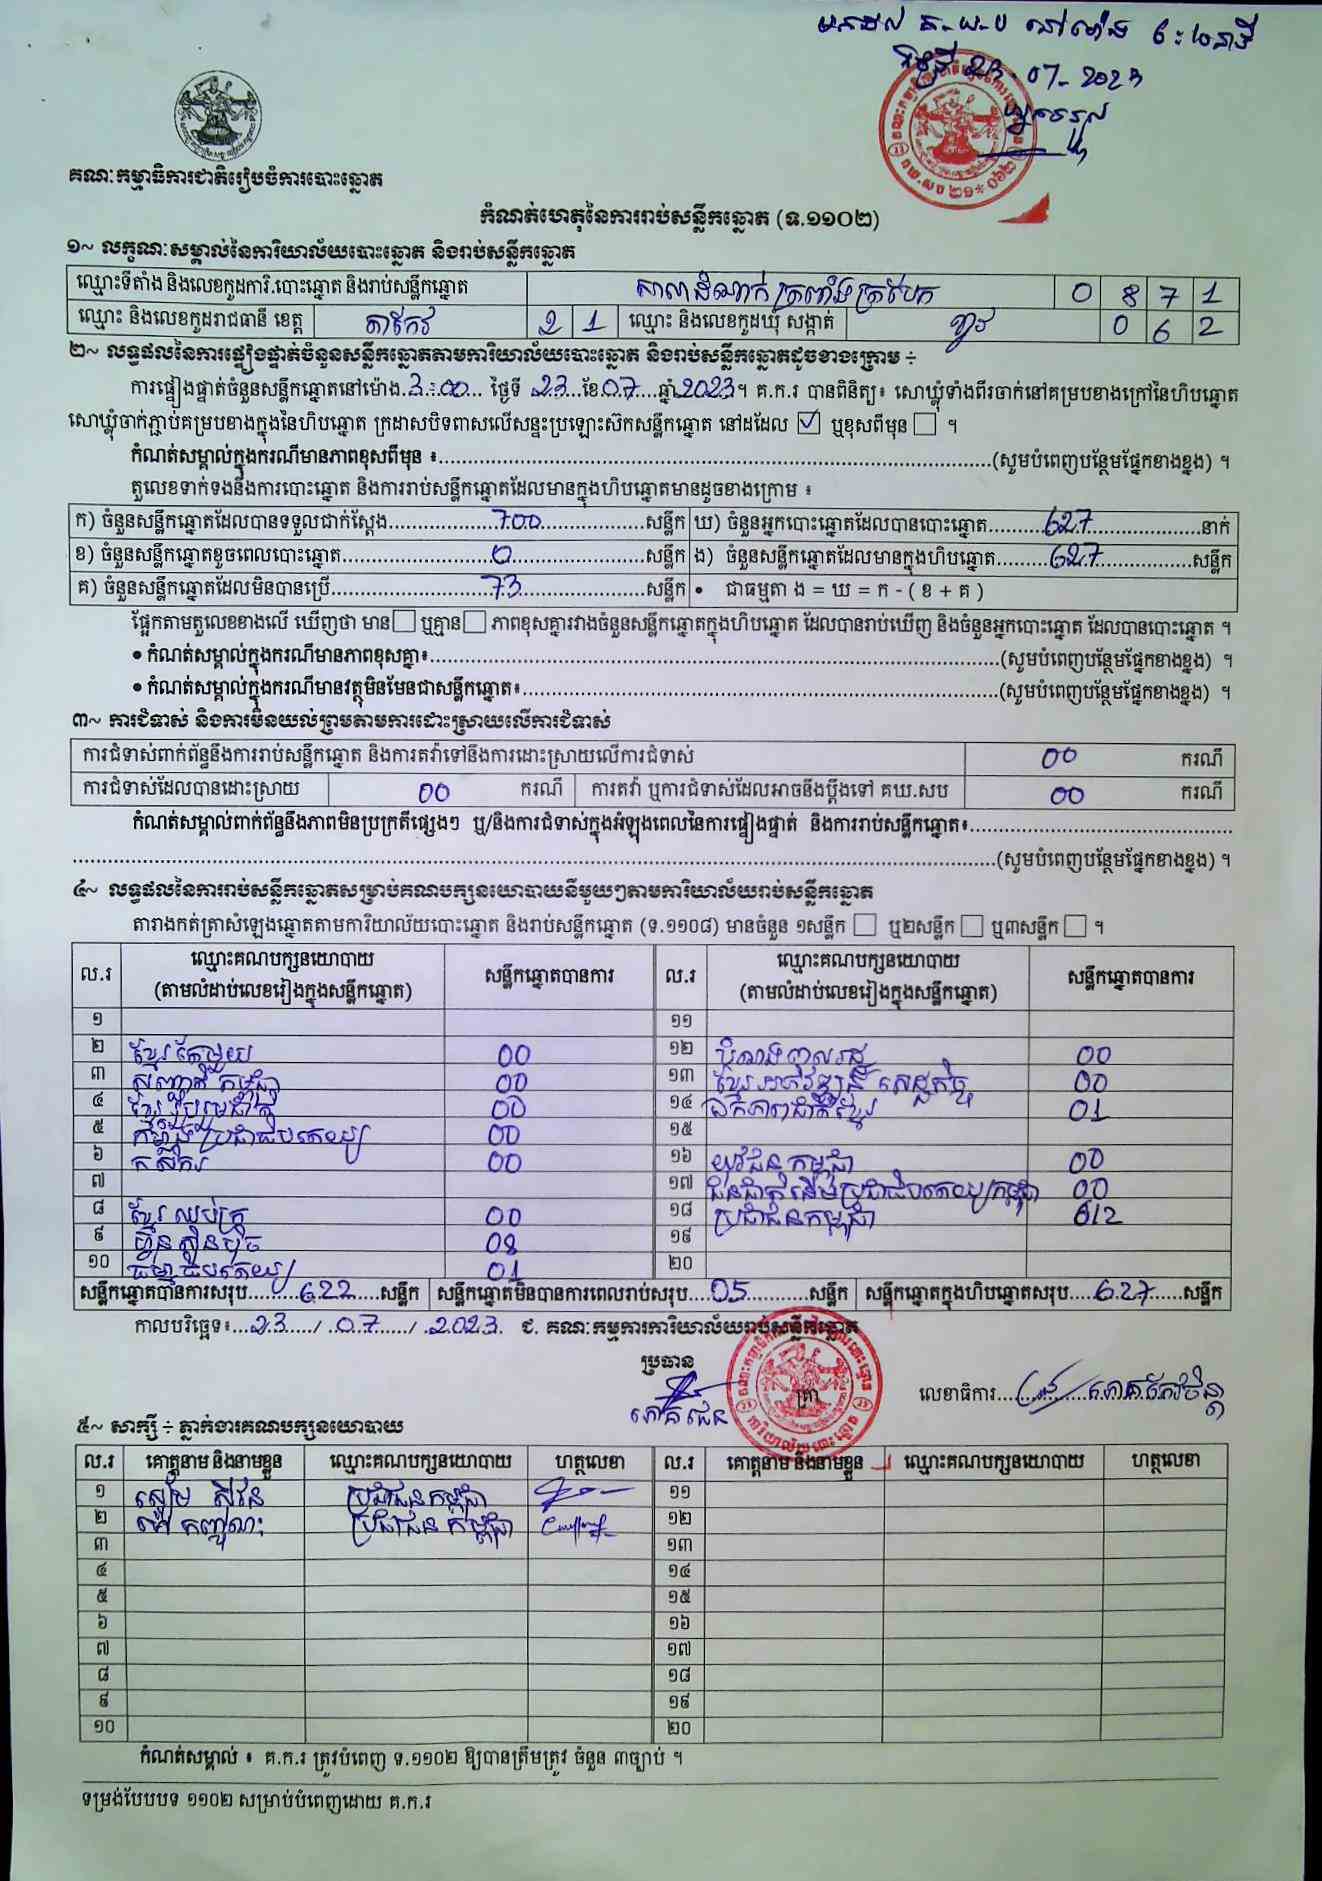 មកដល់ គ.ឃ.ប នៅម៉ោង ៦:២០នាទី
ថ្ងៃទី 23-07-2023
អ្នកទទួល
គណៈកម្មាធិការជាតិរៀបចំការបោះឆ្នោត
កំណត់ហេតុនៃការរាប់សន្លឹកឆ្នោត (ទ.១១០២)
១~ លក្ខណៈសម្គាល់នៃការិយាល័យបោះឆ្នោត និងរាប់សន្លឹកឆ្នោត
ឈ្មោះទីតាំង និងលេខកូដការិ.បោះឆ្នោត និងរាប់សន្លឹកឆ្នោត សាលាដំណាក់ត្រពាំងត្របែក 0 8 7 1
ឈ្មោះ និងលេខកូដរាជធានី ខេត្ត តាកែវ 2 1 ឈ្មោះ និងលេខកូដឃុំ សង្កាត់ 0 6 2
២~ លទ្ធផលនៃការផ្ទៀងផ្ទាត់ចំនួនសន្លឹកឆ្នោតតាមការិយាល័យបោះឆ្នោត និងរាប់សន្លឹកឆ្នោតដូចខាងក្រោម ÷
ការផ្ទៀងផ្ទាត់ចំនួនសន្លឹកឆ្នោតនៅម៉ោង 3:00 ថ្ងៃទី 23 ខែ 07 ឆ្នាំ 2023។ គ.ក.រ បានពិនិត្យ៖ សោឃ្លុំទាំងពីរចាក់នៅគម្របខាងក្រៅនៃហិបឆ្នោត
សោឃ្លុំចាក់ភ្ជាប់គម្របខាងក្នុងនៃហិបឆ្នោត ក្រដាសបិទពាសលើសន្ទះប្រឡោះស៊កសន្លឹកឆ្នោត នៅដដែល ☑ ឬខុសពីមុន ☐ ។
កំណត់សម្គាល់ក្នុងករណីមានភាពខុសពីមុន ៖ (សូមបំពេញបន្ថែមផ្នែកខាងខ្នង) ។
តួលេខទាក់ទងនឹងការបោះឆ្នោត និងការរាប់សន្លឹកឆ្នោតដែលមានក្នុងហិបឆ្នោតមានដូចខាងក្រោម ៖
ក) ចំនួនសន្លឹកឆ្នោតដែលបានទទួលជាក់ស្តែង 700 សន្លឹក ឃ) ចំនួនអ្នកបោះឆ្នោតដែលបានបោះឆ្នោត 627 នាក់
ខ) ចំនួនសន្លឹកឆ្នោតខូចពេលបោះឆ្នោត 0 សន្លឹក ង) ចំនួនសន្លឹកឆ្នោតដែលមានក្នុងហិបឆ្នោត 627 សន្លឹក
គ) ចំនួនសន្លឹកឆ្នោតដែលមិនបានប្រើ 73 សន្លឹក • ជាធម្មតា ង = ឃ = ក - ( ខ + គ )
ផ្អែកតាមតួលេខខាងលើ ឃើញថា មាន ☐ ឬគ្មាន ☐ ភាពខុសគ្នារវាងចំនួនសន្លឹកឆ្នោតក្នុងហិបឆ្នោត ដែលបានរាប់ឃើញ និងចំនួនអ្នកបោះឆ្នោត ដែលបានបោះឆ្នោត ។
• កំណត់សម្គាល់ក្នុងករណីមានភាពខុសគ្នា៖ (សូមបំពេញបន្ថែមផ្នែកខាងខ្នង) ។
• កំណត់សម្គាល់ក្នុងករណីមានវត្ថុមិនមែនជាសន្លឹកឆ្នោត៖ (សូមបំពេញបន្ថែមផ្នែកខាងខ្នង) ។
៣~ ការជំទាស់ និងការមិនយល់ព្រមតាមការដោះស្រាយលើការជំទាស់
ការជំទាស់ពាក់ព័ន្ធនឹងការរាប់សន្លឹកឆ្នោត និងការតវ៉ាទៅនឹងការដោះស្រាយលើការជំទាស់ 00 ករណី
ការជំទាស់ដែលបានដោះស្រាយ 00 ករណី ការតវ៉ា ឬការជំទាស់ដែលអាចនឹងប្តឹងទៅ គឃ.សប 00 ករណី
កំណត់សម្គាល់ពាក់ព័ន្ធនឹងភាពមិនប្រក្រតីផ្សេងៗ ឬ/និងការជំទាស់ក្នុងអំឡុងពេលនៃការផ្ទៀងផ្ទាត់ និងការរាប់សន្លឹកឆ្នោត៖
(សូមបំពេញបន្ថែមផ្នែកខាងខ្នង) ។
៤~ លទ្ធផលនៃការរាប់សន្លឹកឆ្នោតសម្រាប់គណបក្សនយោបាយនីមួយៗតាមការិយាល័យរាប់សន្លឹកឆ្នោត
តារាងកត់ត្រាសំឡេងឆ្នោតតាមការិយាល័យបោះឆ្នោត និងរាប់សន្លឹកឆ្នោត (ទ.១១០៨) មានចំនួន ១សន្លឹក ☐ ឬ២សន្លឹក ☐ ឬ៣សន្លឹក ☐ ។
ល.រ ឈ្មោះគណបក្សនយោបាយ (តាមលំដាប់លេខរៀងក្នុងសន្លឹកឆ្នោត) សន្លឹកឆ្នោតបានការ ល.រ ឈ្មោះគណបក្សនយោបាយ (តាមលំដាប់លេខរៀងក្នុងសន្លឹកឆ្នោត) សន្លឹកឆ្នោតបានការ
១ ១១
២ ខ្មែរតែមួយ 00 ១២ បំណងពលរដ្ឋ 00
៣ សញ្ជាតិកម្ពុជា 00 ១៣ ខ្មែរអភិវឌ្ឍន៍សេដ្ឋកិច្ច 00
៤ ខ្មែររួបរួមជាតិ 00 ១៤ ឯកភាពជាតិខ្មែរ 01
៥ កម្លាំងប្រជាធិបតេយ្យ 00 ១៥
៦ កសិករ 00 ១៦ យុវជនកម្ពុជា 00
៧ ១៧ ជនជាតិដើមប្រជាធិបតេយ្យកម្ពុជា 00
៨ ខ្មែរឈប់ក្រ 00 ១៨ ប្រជាជនកម្ពុជា 612
៩ ហ្វ៊ុនស៊ិនប៉ិច 08 ១៩
១០ ធម្មាធិបតេយ្យ 01 ២០
សន្លឹកឆ្នោតបានការសរុប 622 សន្លឹក សន្លឹកឆ្នោតមិនបានការពេលរាប់សរុប 05 សន្លឹក សន្លឹកឆ្នោតក្នុងហិបឆ្នោតសរុប 627 សន្លឹក
កាលបរិច្ឆេទ៖ 23 / 07 / 2023 ជ. គណៈកម្មការការិយាល័យរាប់សន្លឹកឆ្នោត
ប្រធាន ត្រា លេខាធិការ
៥~ សាក្សី ÷ ភ្នាក់ងារគណបក្សនយោបាយ
ល.រ គោត្តនាម និងនាមខ្លួន ឈ្មោះគណបក្សនយោបាយ ហត្ថលេខា ល.រ គោត្តនាម និងនាមខ្លួន ឈ្មោះគណបក្សនយោបាយ ហត្ថលេខា
១ ស្ងៀម ស៊ីវន ប្រជាជនកម្ពុជា ១១
២ កញ្ញណៈ ប្រជាជនកម្ពុជា ១២
៣ ១៣
៤ ១៤
៥ ១៥
៦ ១៦
៧ ១៧
៨ ១៨
៩ ១៩
១០ ២០
កំណត់សម្គាល់ ៖ គ.ក.រ ត្រូវបំពេញ ទ.១១០២ ឱ្យបានត្រឹមត្រូវ ចំនួន ៣ច្បាប់ ។
ទម្រង់បែបបទ ១១០២ សម្រាប់បំពេញដោយ គ.ក.រ